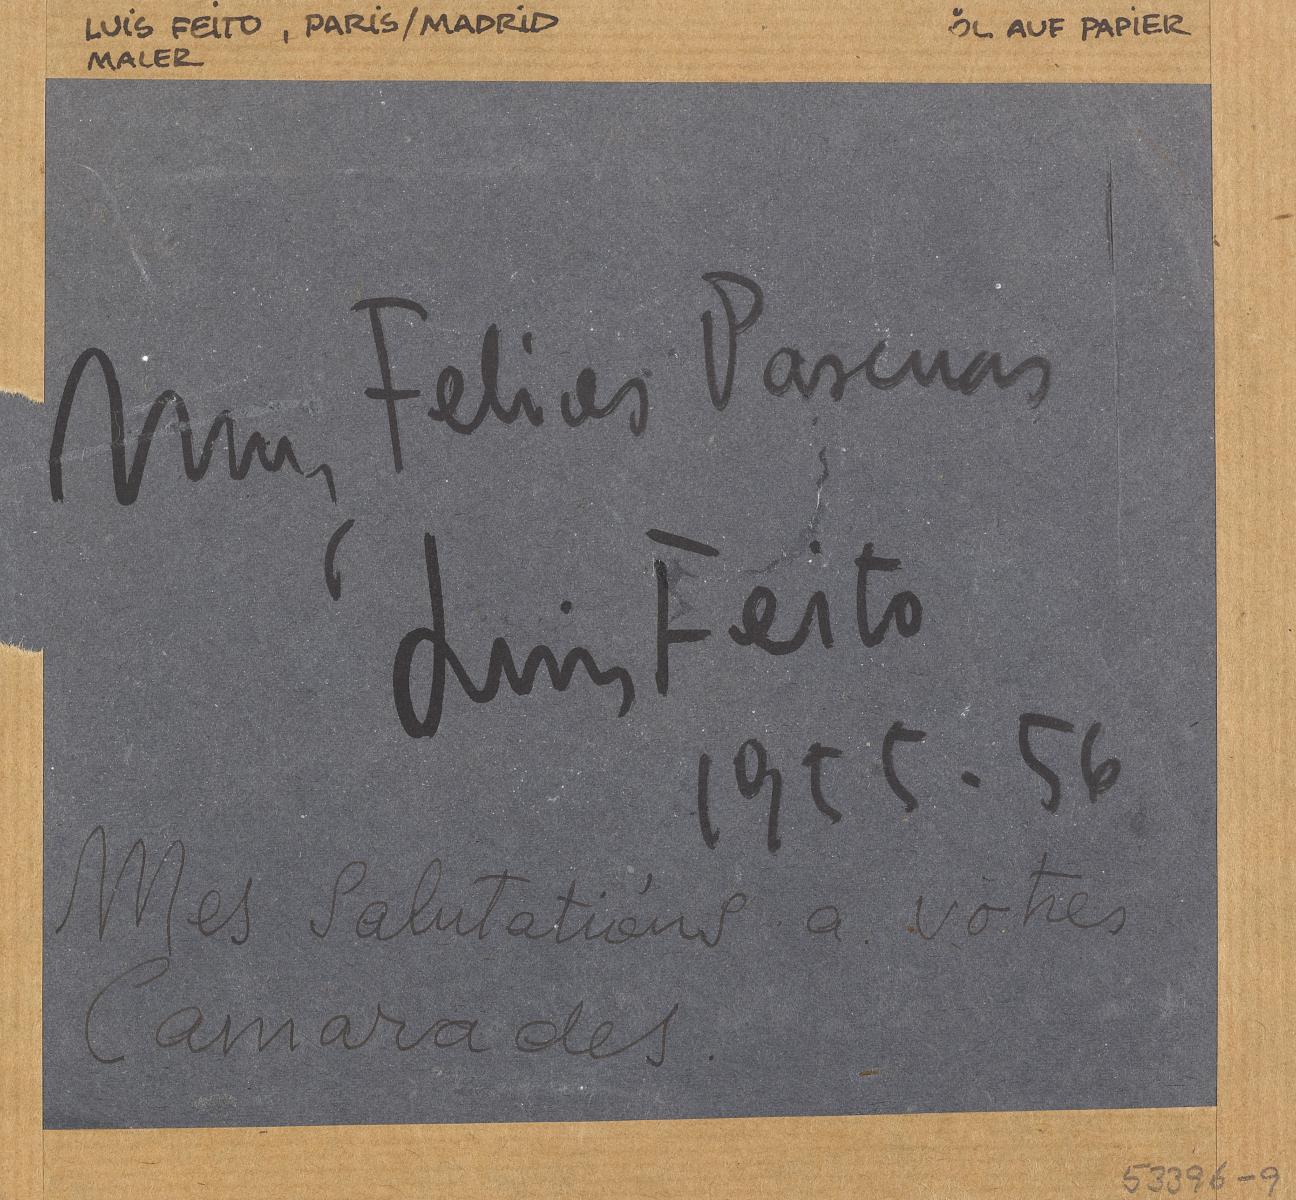 LUIS FEITO, PARIS/MADRID
MALER
ÖL AUF PAPIER
Muy Felices Pascuas
Luis Feito
1955.56
Mes Salutatións a vôtres
Camarades.
53396-9